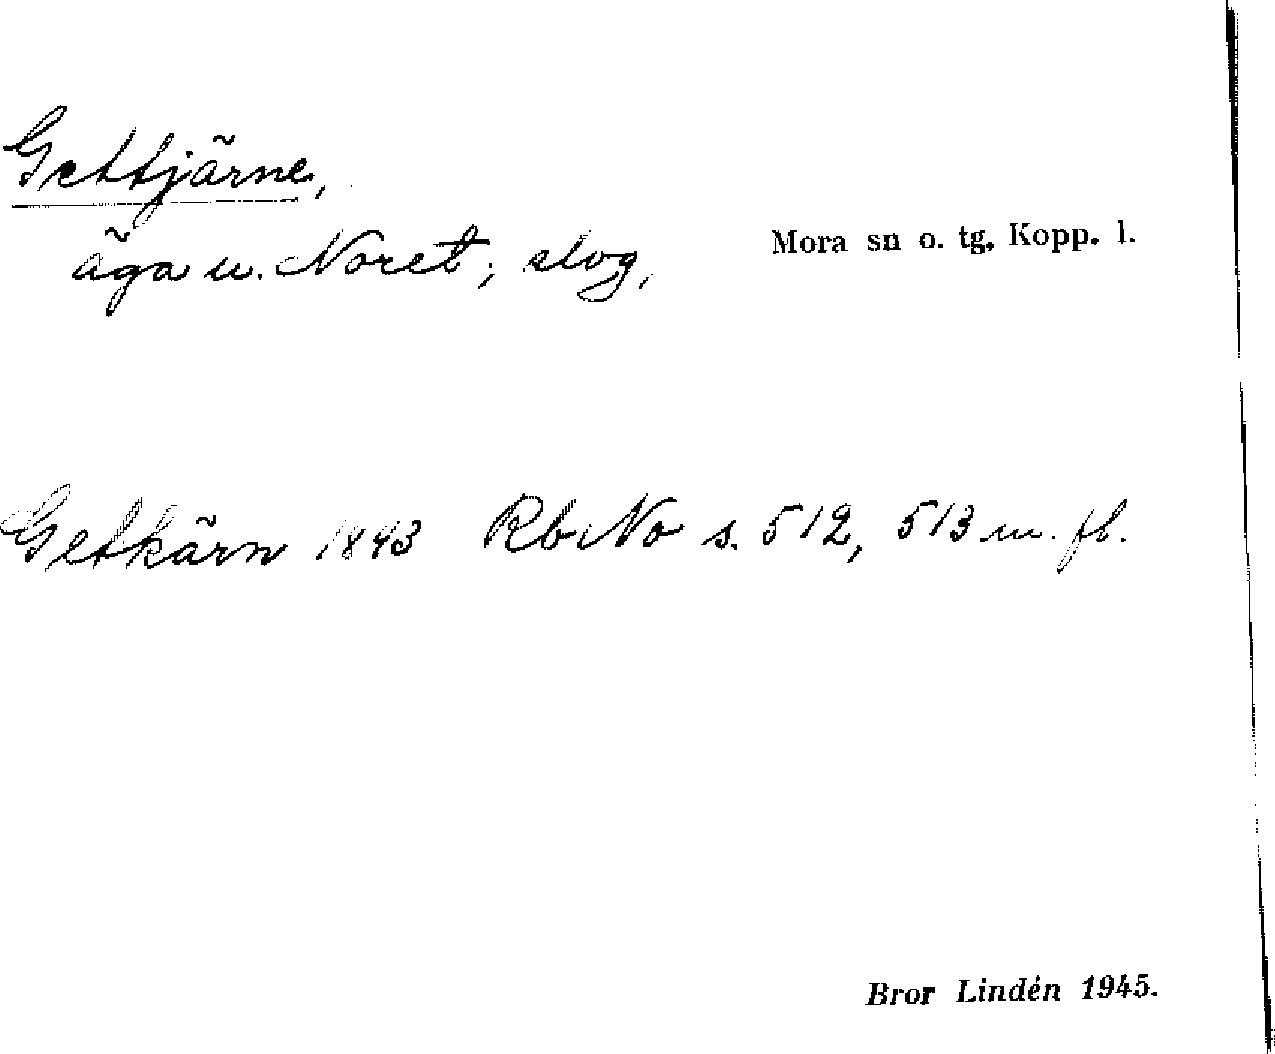 Gettjärne,
äga u. Noret; slog,
Mora sn o. tg. Kopp. l.
Getkärn 1843 Rb No s. 512, 513 m. fl.
Bror Lindén 1945.